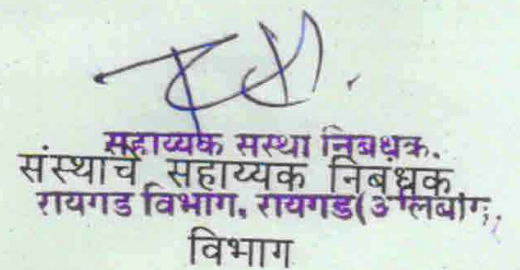 सहाय्यक सस्था निबंधक.
संस्थाचे सहाय्यक निबंधक
रायगड विभाग. रायगड(अलिबाग)
विभाग